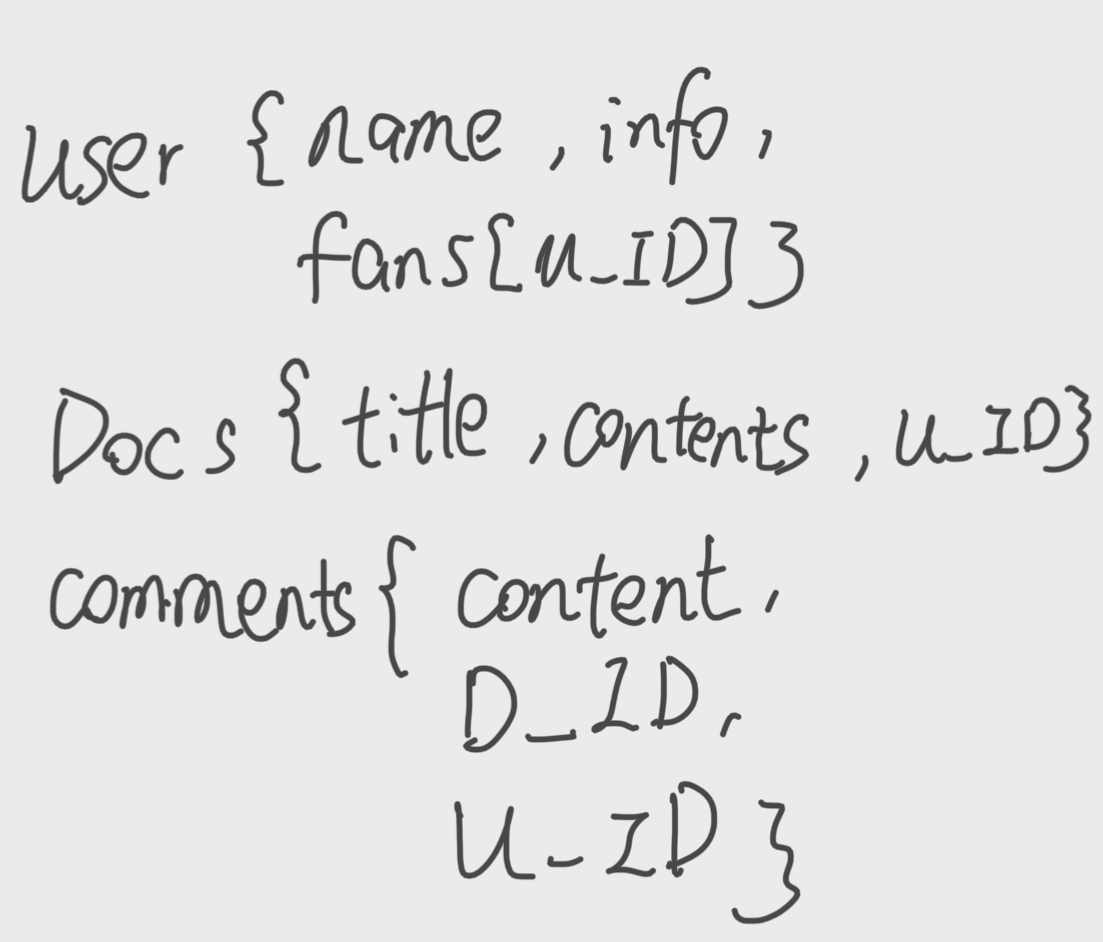 user {name, info,
fans[u_ID]}
Docs {title, contents, u_ID}
comments{ content,
D_ID,
U-ID}